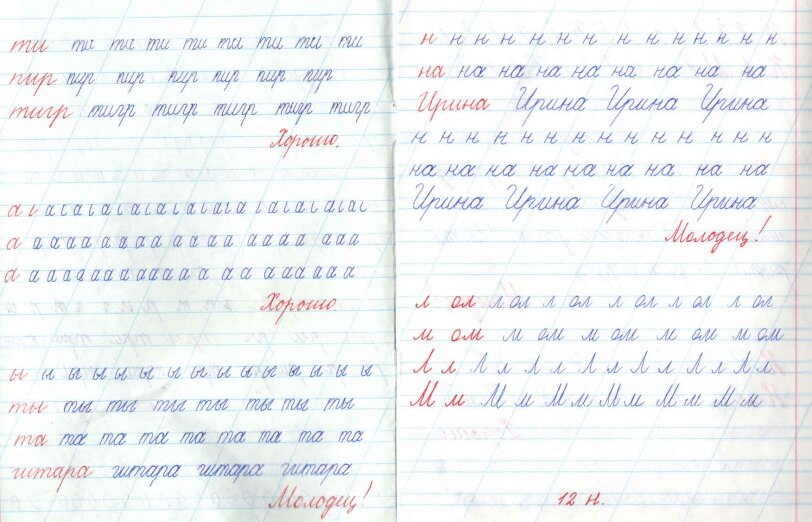 ти ти ти ти ти ти ти ти ти
пир пир пир пир пир пир пир
тигр тигр тигр тигр тигр тигр
Хорошо.
а ı а ı а ı а ı а ı а ı а ı а ı а ı а ı а ı а ı а ı
а а а а а а а а а а а а а а а а а а а
а а а а а а а а а а а а а а а а а а а а
Хорошо.
ы ы ы ы ы ы ы ы ы ы ы ы ы ы ы
ты ты ты ты ты ты ты ты
та та та та та та та та та
гитара гитара гитара гитара
Молодец!
н н н н н н н н н н н н н н
на на на на на на на на на
Ирина Ирина Ирина Ирина
н н н н н н н н н н н н н н
на на на на на на на на на
Ирина Ирина Ирина Ирина
Молодец!
л ол л ол л ол л ол л ол л ол
м ом м ом м ом м ом м ом
Л л Л л Л л Л л Л л Л л Л л
М м М м М м М м М м М м
12 н.